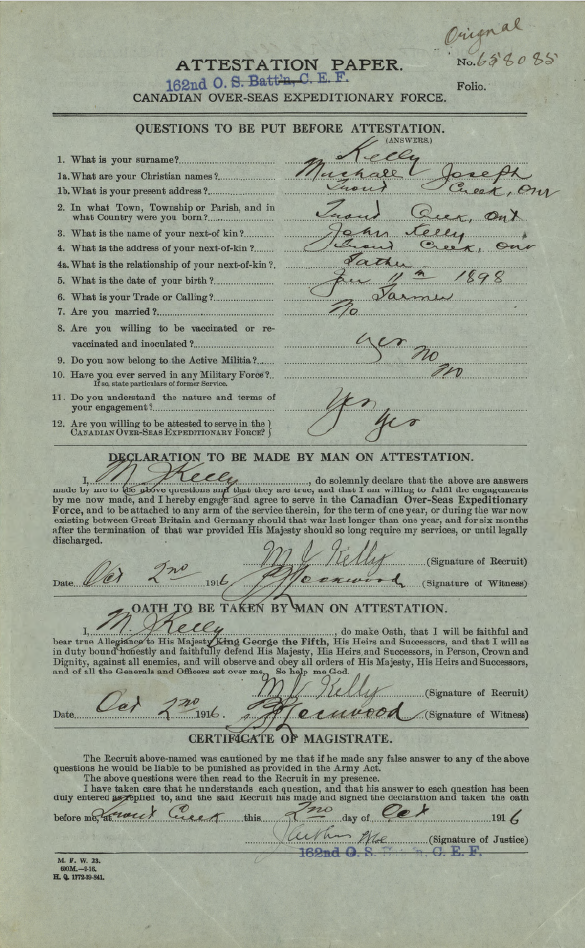 Orignal
ATTESTATION PAPER. No. 658085
162nd O. S. Batt'n, C. E. F. Folio.
CANADIAN OVER-SEAS EXPEDITIONARY FORCE.
QUESTIONS TO BE PUT BEFORE ATTESTATION.
(ANSWERS.)
1. What is your surname? Kelly
1a. What are your Christian names? Joseph
1b. What is your present address? Trout Creek, Ont
2. In what Town, Township or Parish, and in
what Country were you born? Trout Creek, Ont
3. What is the name of your next-of kin? John Kelly
4. What is the address of your next-of-kin? Trout Creek, Ont
4a. What is the relationship of your next-of-kin? Father
5. What is the date of your birth? Jan 11th 1898
6. What is your Trade or Calling? Farmer
7. Are you married? No
8. Are you willing to be vaccinated or re-
vaccinated and inoculated? yes
9. Do you now belong to the Active Militia? No
10. Have you ever served in any Military Force? No
If so, state particulars of former Service.
11. Do you understand the nature and terms of
your engagement? Yes
12. Are you willing to be attested to serve in the
CANADIAN OVER-SEAS EXPEDITIONARY FORCE? Yes
DECLARATION TO BE MADE BY MAN ON ATTESTATION.
I, M J Kelly, do solemnly declare that the above are answers
made by me to the above questions and that they are true, and that I am willing to fulfil the engagements
by me now made, and I hereby engage and agree to serve in the Canadian Over-Seas Expeditionary
Force, and to be attached to any arm of the service therein, for the term of one year, or during the war now
existing between Great Britain and Germany should that war last longer than one year, and for six months
after the termination of that war provided His Majesty should so long require my services, or until legally
discharged.
M J Kelly (Signature of Recruit)
Date Oct 2nd 1916 (Signature of Witness)
OATH TO BE TAKEN BY MAN ON ATTESTATION.
I, M J Kelly, do make Oath, that I will be faithful and
bear true Allegiance to His Majesty King George the Fifth, His Heirs and Successors, and that I will as
in duty bound honestly and faithfully defend His Majesty, His Heirs and Successors, in Person, Crown and
Dignity, against all enemies, and will observe and obey all orders of His Majesty, His Heirs and Successors,
and of all the Generals and Officers set over me. So help me God.
M J Kelly (Signature of Recruit)
Date Oct 2nd 1916. (Signature of Witness)
CERTIFICATE OF MAGISTRATE.
The Recruit above-named was cautioned by me that if he made any false answer to any of the above
questions he would be liable to be punished as provided in the Army Act.
The above questions were then read to the Recruit in my presence.
I have taken care that he understands each question, and that his answer to each question has been
duly entered as replied to, and the said Recruit has made and signed the declaration and taken the oath
before me, at Trout Creek this 2nd day of Oct 1916
(Signature of Justice)
162nd O. S. Batt'n, C. E. F.
M. F. W. 23.
600M.—5-16.
H. Q. 1772-39-841.